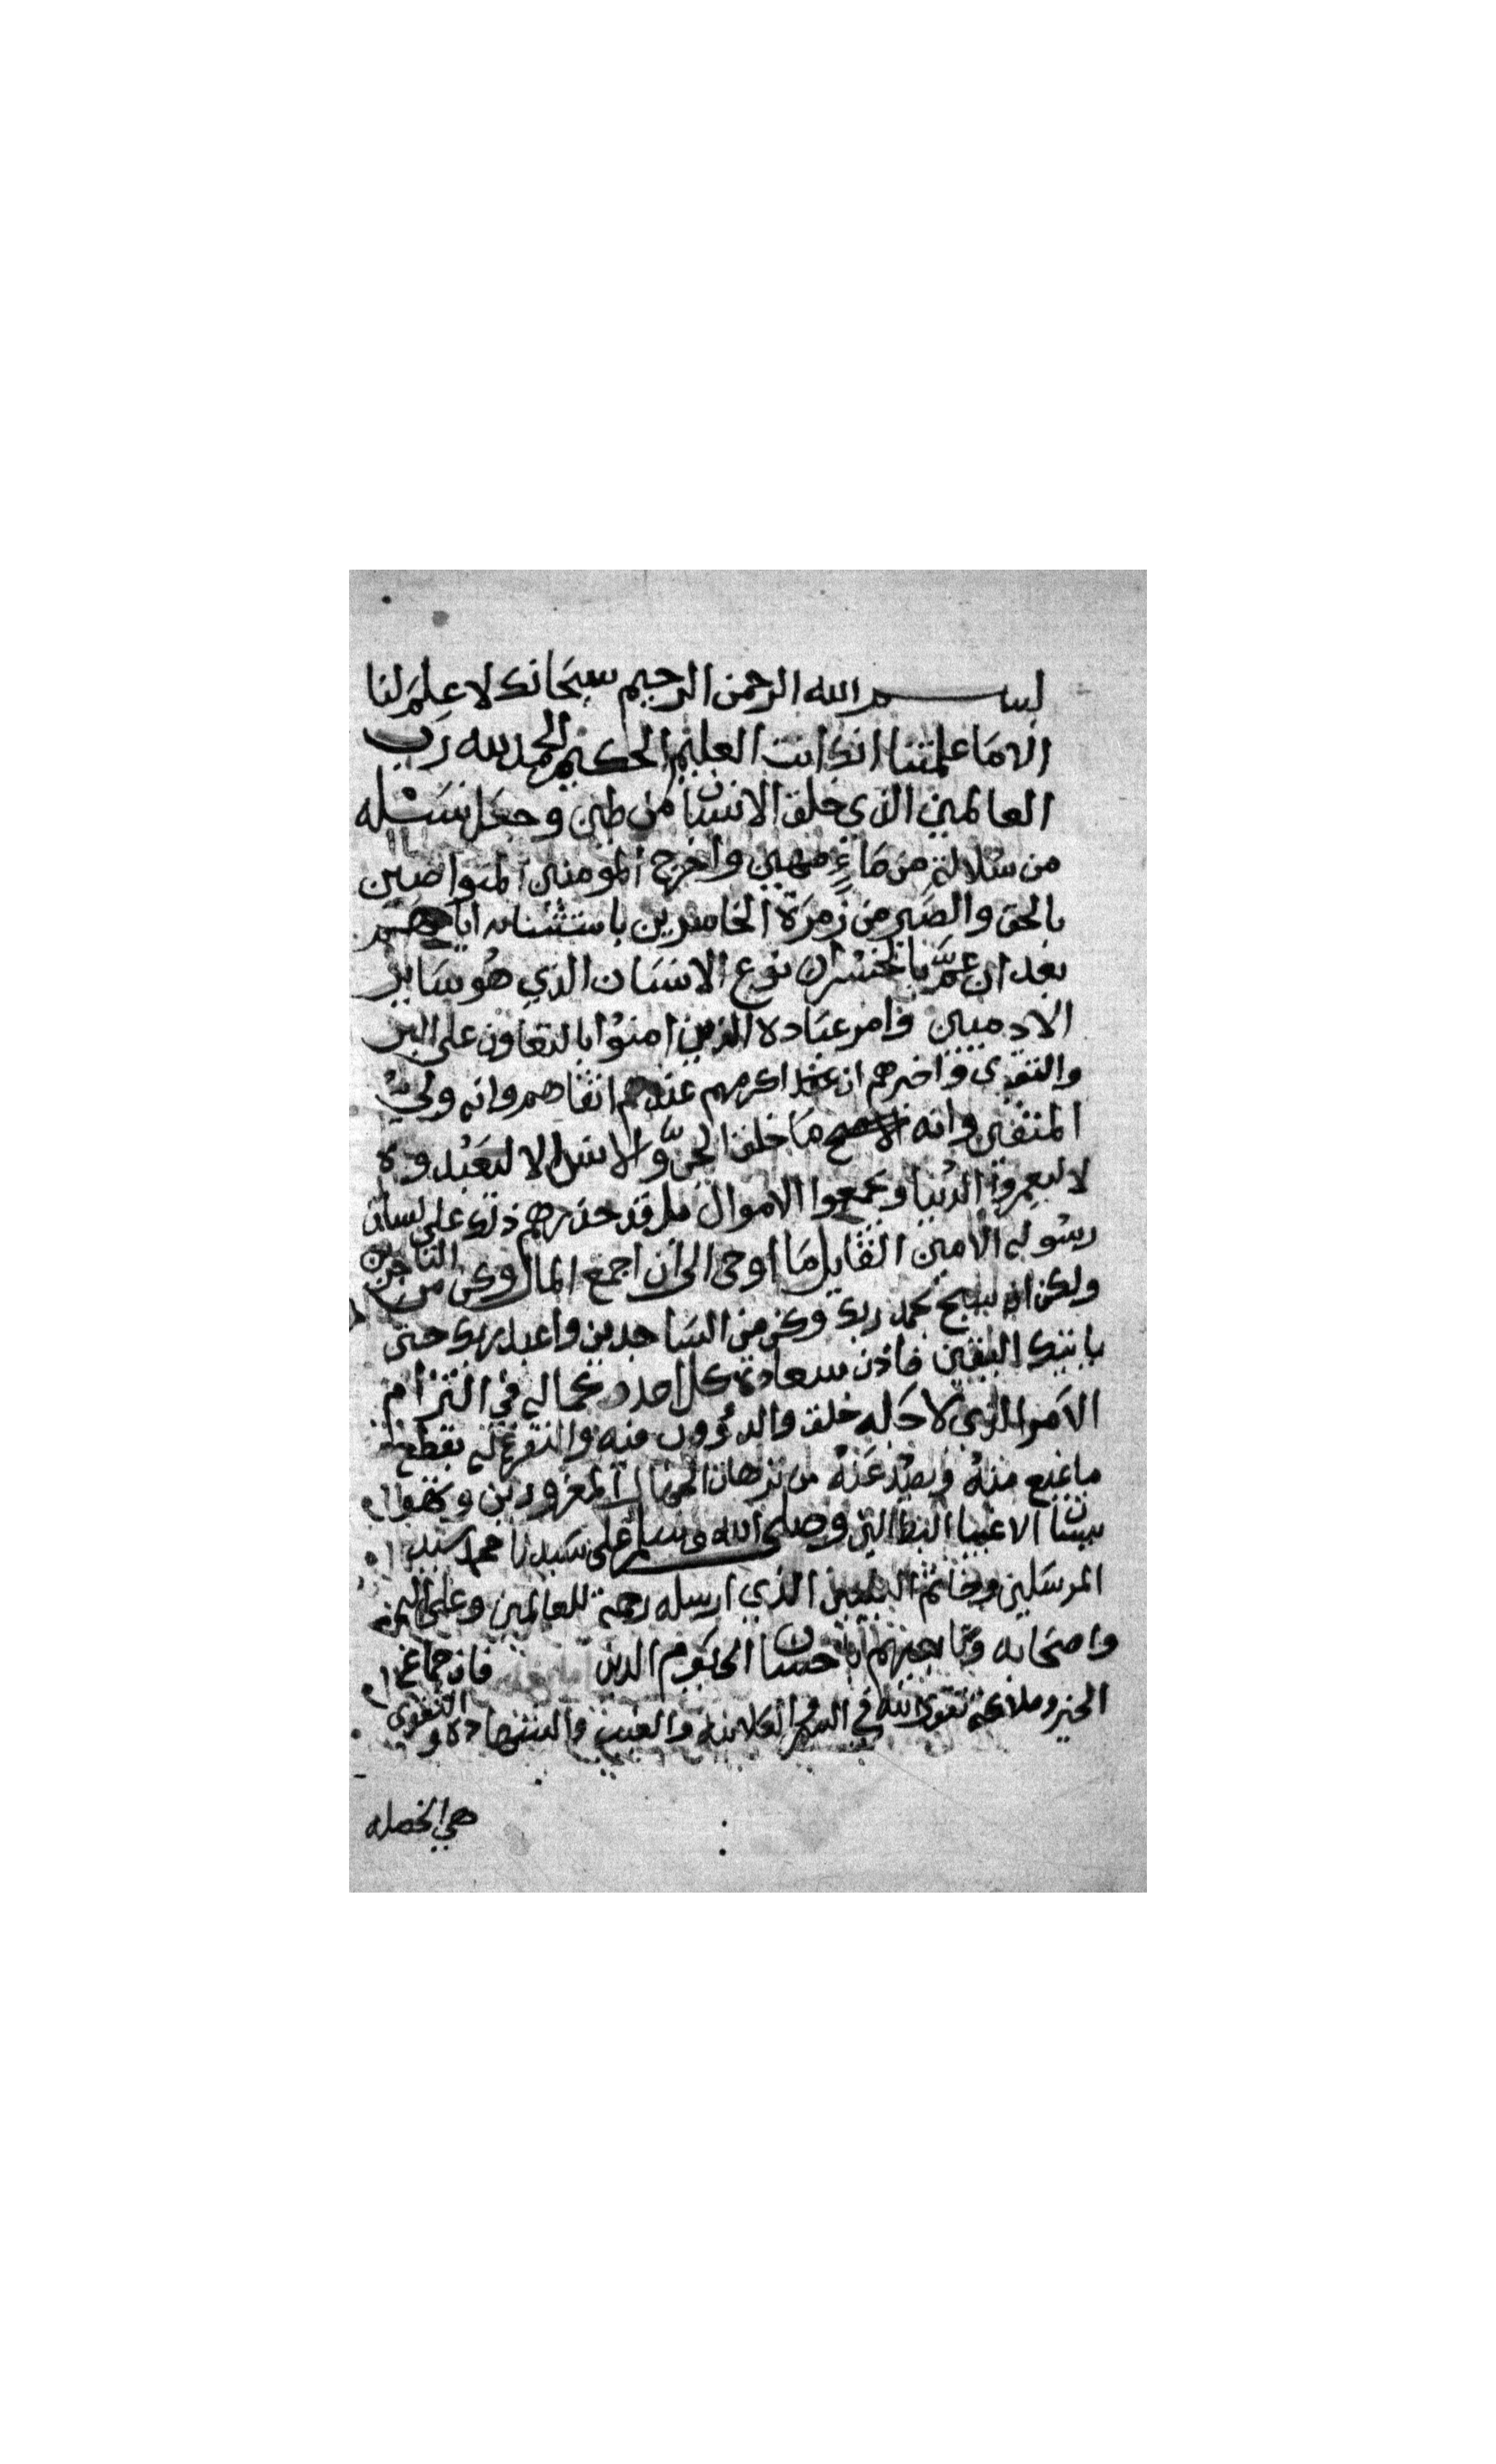 بسم الله الرحمن الرحيم سبحانك لا علم لنا
الا ما علمتنا انك انت العليم الحكيم الحمد لله رب
العالمين الذي خلق الانسان من طين وجعل نسله
من سلالة من ماءٍ مهين واخرج المومنين المتواصين
بالحق والصبر من زمرة الخاسرين باستثنائه اياهم
بعد ان عمَّ بالخسران نوع الانسان الذي هو ساير
الادميين وامر عباده الذين امنوا بالتعاون على البر
والتقوى واخبرهم ان اكرمهم عنده اتقاهم وانه وليُّ
المتقين وانه ما خلق الجنَّ والانس الا ليعبدوه
لا ليعمروا الدنيا ويجمعوا الاموال بل قد حذرهم ذلك على لسان
رسوله الامين القايل ما اوحى الي ان اجمع المال وكن من التاجرين
ولكن ان سبح بحمد ربك وكن من الساجدين واعبد ربك حتى
ياتيك اليقين فاذن سعادة كل احد وكماله في التزام
الامر الذي لاجله خلق والدؤوب فيه والتفرغ له بقطع
ما يمنع منه ويصد عنه من ترهات المغرورين
الاغبيا البطالين وصلى الله وسلم على سيدنا محمد سيد
المرسلين وخاتم النبيين الذي ارسله رحمة للعالمين وعلى اله
واصحابه وتابعيهم باحسان الى يوم الدين فان جماع
الخير وملاكه تقوى الله في السر والعلانيه والغيب والشهادة و التقوى
هي الخصله